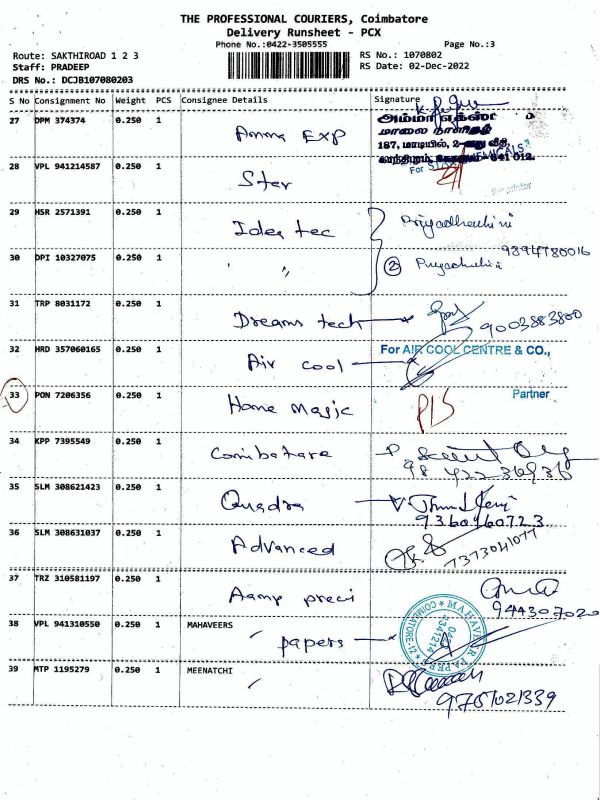 THE PROFESSIONAL COURIERS, Coimbatore
Delivery Runsheet - PCX
Phone No.:0422-3505555 Page No.:3
Route: SAKTHIROAD 1 2 3 RS No.: 1070802
Staff: PRADEEP RS Date: 02-Dec-2022
DRS No.: DCJB107080203
S No Consignment No Weight PCS Consignee Details Signature
27 DPM 374374 0.250 1 Amma Exp
அம்மா எக்ஸ்
மாலை நாளிதழ்
187, மாடியில், 2-வது வீதி,
காந்திபுரம், 641 012.
28 VPL 941214587 0.250 1 Star For CHEMICALS
29 HSR 2571391 0.250 1 Idea tec
9894780016
30 DPI 10327075 0.250 1 " " 2
31 TRP 8031172 0.250 1 Dreams tech 9003883800
32 HRD 357060165 0.250 1 Air cool For AIR COOL CENTRE & CO.,
33 PON 7206356 0.250 1 Home Magic Partner
34 KPP 7395549 0.250 1 Coimbatore
35 SLM 308621423 0.250 1 Quadra
9360960723
36 SLM 308631037 0.250 1 Advanced 7373041077
37 TRZ 310581197 0.250 1 Aamp preci
38 VPL 941310550 0.250 1 MAHAVEERS papers
39 MTP 1195279 0.250 1 MEENATCHI